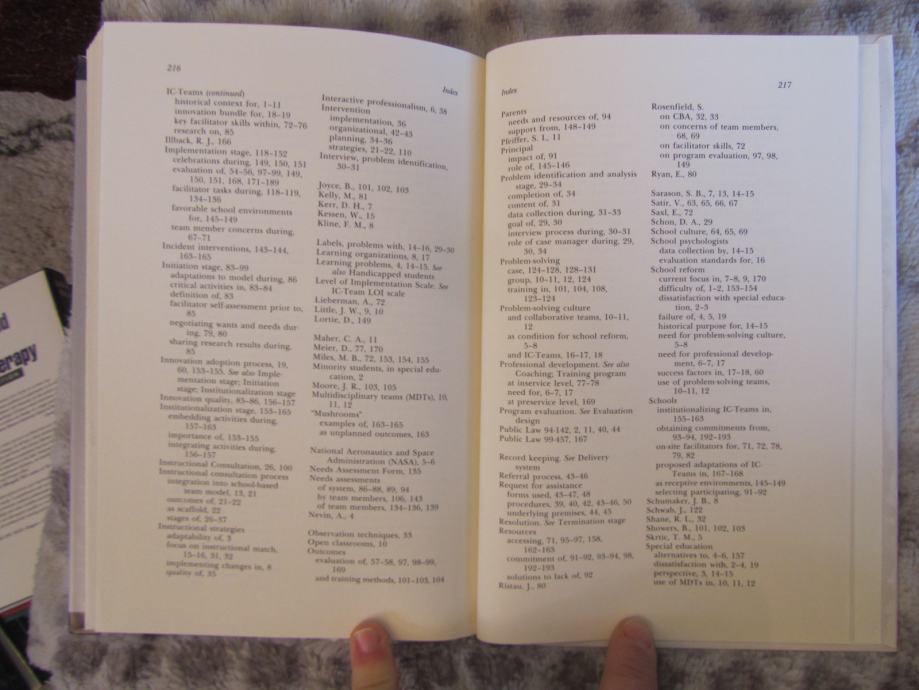 216
Index
IC-Teams (continued)
historical context for, 1–11
innovation bundle for, 18–19
key facilitator skills within, 72–76
research on, 85
Illback, R. J., 166
Implementation stage, 118–152
celebrations during, 149, 150, 151
evaluation of, 54–56, 97–99, 149,
150, 151, 168, 171–189
facilitator tasks during, 118–119,
134–136
favorable school environments
for, 145–149
team member concerns during,
67–71
Incident interventions, 143–144,
163–165
Initiation stage, 83–99
adaptations to model during, 86
critical activities in, 83–84
definition of, 83
facilitator self-assessment prior to,
85
negotiating wants and needs dur-
ing, 79, 80
sharing research results during,
85
Innovation adoption process, 19,
60, 153–155. See also Imple-
mentation stage; Initiation
stage; Institutionalization stage
Innovation quality, 85–86, 156–157
Institutionalization stage, 153–165
embedding activities during,
157–163
importance of, 153–155
integrating activities during,
156–157
Instructional Consultation, 26, 100
Instructional consultation process
integration into school-based
team model, 13, 21
outcomes of, 21–22
as scaffold, 22
stages of, 26–37
Instructional strategies
adaptability of, 3
focus on instructional match,
15–16, 31, 32
implementing changes in, 8
quality of, 35
Interactive professionalism, 6, 38
Intervention
implementation, 36
organizational, 42–43
planning, 34–36
strategies, 21–22, 110
Interview, problem identification,
30–31
Joyce, B., 101, 102, 103
Kelly, M., 81
Kerr, D. H., 7
Kessen, W., 15
Kline, F. M., 8
Labels, problems with, 14–16, 29–30
Learning organizations, 8, 17
Learning problems, 4, 14–15. See
also Handicapped students
Level of Implementation Scale. See
IC-Team LOI scale
Lieberman, A., 72
Little, J. W., 9, 10
Lortie, D., 149
Maher, C. A., 11
Meier, D., 77, 170
Miles, M. B., 72, 153, 154, 155
Minority students, in special edu-
cation, 2
Moore, J. R., 103, 105
Multidisciplinary teams (MDTs), 10,
11, 12
"Mushrooms"
examples of, 163–165
as unplanned outcomes, 163
National Aeronautics and Space
Administration (NASA), 5–6
Needs Assessment Form, 135
Needs assessments
of system, 86–88, 89, 94
by team members, 106, 143
of team members, 134–136, 139
Nevin, A., 4
Observation techniques, 33
Open classrooms, 10
Outcomes
evaluation of, 57–58, 97, 98–99,
169
and training methods, 101–103, 104
Index
217
Parents
needs and resources of, 94
support from, 148–149
Pfeiffer, S. I., 11
Principal
impact of, 91
role of, 145–146
Problem identification and analysis
stage, 29–34
completion of, 34
content of, 31
data collection during, 31–33
goal of, 29, 30
interview process during, 30–31
role of case manager during, 29,
30, 34
Problem-solving
case, 124–128, 128–131
group, 10–11, 12, 124
training in, 101, 104, 108,
123–124
Problem-solving culture
and collaborative teams, 10–11,
12
as condition for school reform,
5–8
and IC-Teams, 16–17, 18
Professional development. See also
Coaching; Training program
at inservice level, 77–78
need for, 6–7, 17
at preservice level, 169
Program evaluation. See Evaluation
design
Public Law 94-142, 2, 11, 40, 44
Public Law 99-457, 167
Record keeping. See Delivery
system
Referral process, 43–46
Request for assistance
forms used, 43–47, 48
procedures, 39, 40, 42, 43–46, 50
underlying premises, 44, 45
Resolution. See Termination stage
Resources
accessing, 71, 95–97, 158,
162–163
commitment of, 91–92, 93–94, 98,
192–193
solutions to lack of, 92
Ristau, J., 80
Rosenfield, S.
on CBA, 32, 33
on concerns of team members,
68, 69
on facilitator skills, 72
on program evaluation, 97, 98,
149
Ryan, E., 80
Sarason, S. B., 7, 13, 14–15
Satir, V., 63, 65, 66, 67
Saxl, E., 72
Schon, D. A., 29
School culture, 64, 65, 69
School psychologists
data collection by, 14–15
evaluation standards for, 16
School reform
current focus in, 7–8, 9, 170
difficulty of, 1–2, 153–154
dissatisfaction with special educa-
tion, 2–3
failure of, 4, 5, 19
historical purpose for, 14–15
need for problem-solving culture,
5–8
need for professional develop-
ment, 6–7, 17
success factors in, 17–18, 60
use of problem-solving teams,
10–11, 12
Schools
institutionalizing IC-Teams in,
155–163
obtaining commitments from,
93–94, 192–193
on-site facilitators for, 71, 72, 78,
79, 82
proposed adaptations of IC-
Teams in, 167–168
as receptive environments, 145–149
selecting participating, 91–92
Schumaker, J. B., 8
Schwab, J., 122
Shane, R. L., 32
Showers, B., 101, 102, 103
Skrtic, T. M., 5
Special education
alternatives to, 4–6, 157
dissatisfaction with, 2–4, 19
perspective, 3, 14–15
use of MDTs in, 10, 11, 12